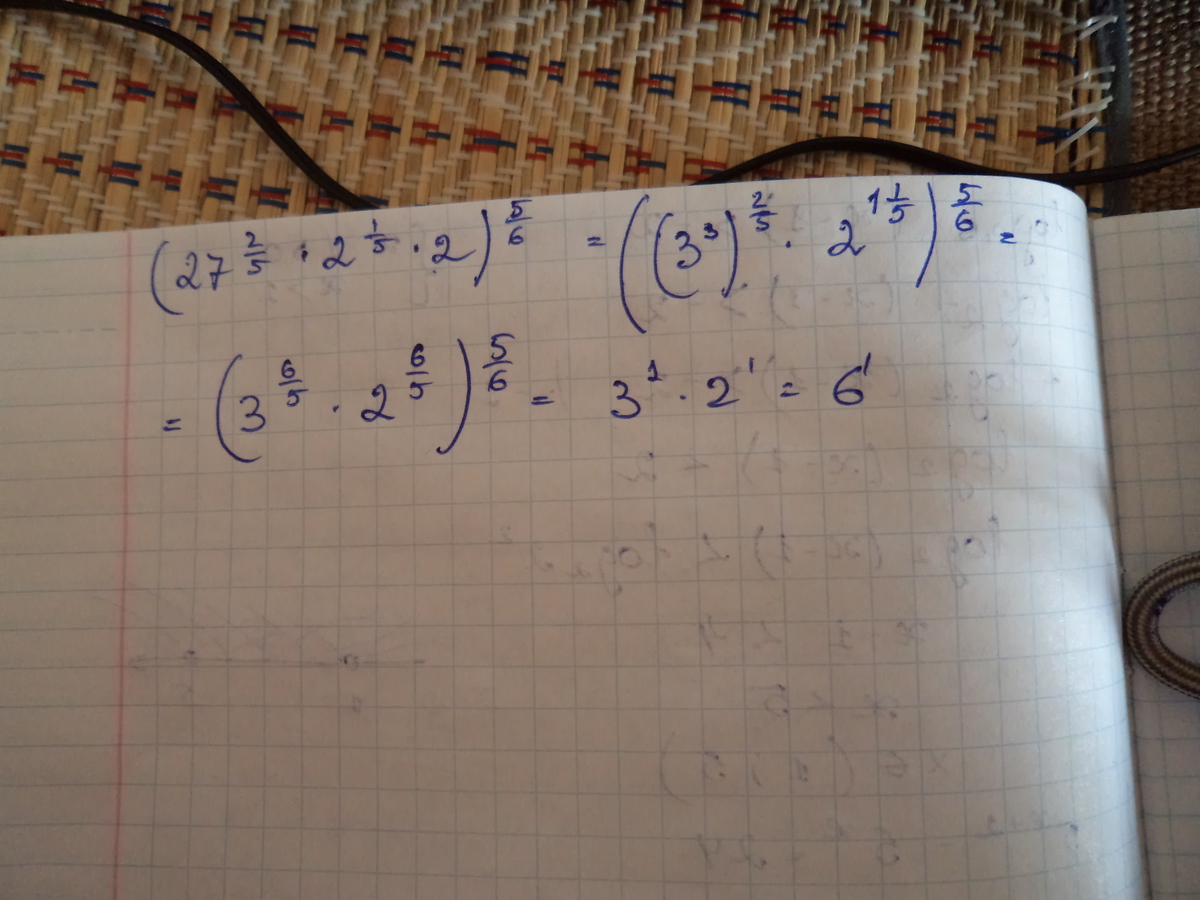 (27^{2/5} · 2^{1/5} · 2)^{5/6} = ((3^3)^{2/5} · 2^{1 1/5})^{5/6} =
= (3^{6/5} · 2^{6/5})^{5/6} = 3^1 · 2^1 = 6^1